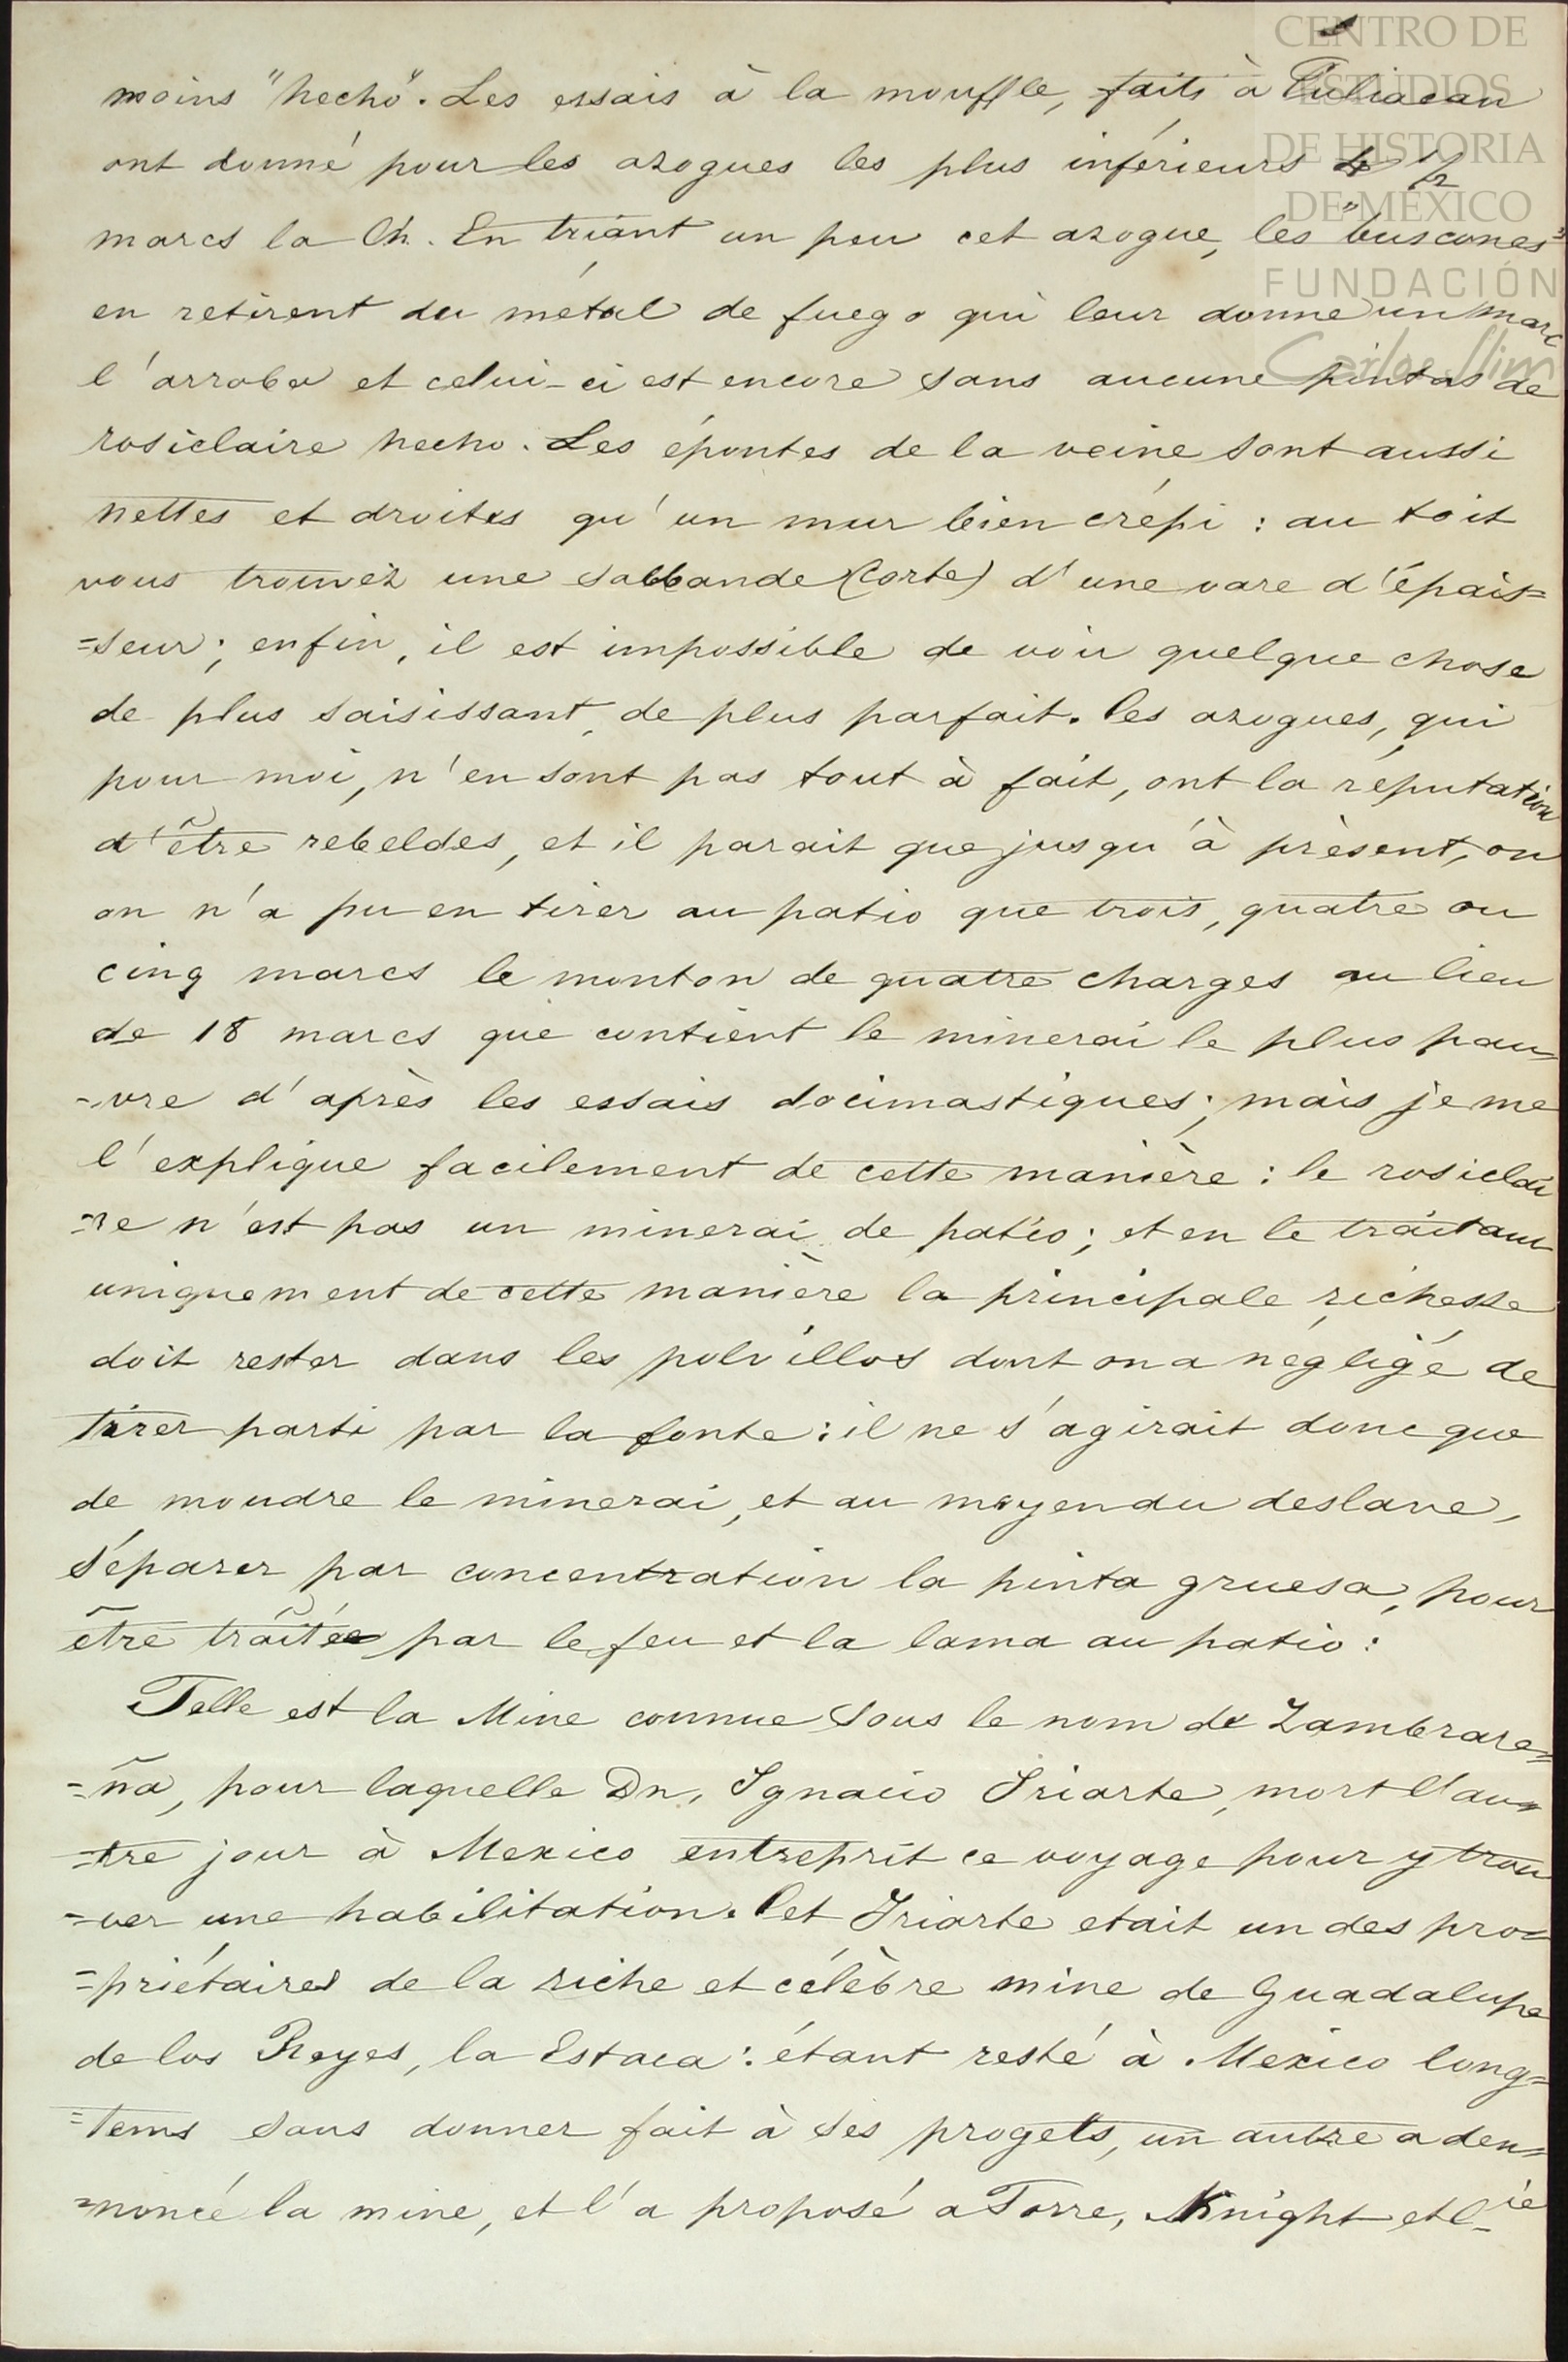 CENTRO DE
ESTUDIOS
DE HISTORIA
DE MÉXICO
FUNDACIÓN
Carlos Slim
moins "hecho". Les essais à la mouffle, faits à Culiacan
ont donné pour les azogues les plus inférieurs 4 1/2
marcs la Ch. En triant un peu cet azogue, les "buscones"
en retirent du métal de fuego qui leur donne un marc
l'arroba et celui-ci est encore sans aucune pintas de
rosiclaire hecho. Les épontes de la veine sont aussi
nettes et droites qu'un mur bien crépi : au toit
vous trouvez une salbande (Corte) d'une vare d'épais=
=seur; enfin, il est impossible de voir quelque chose
de plus saisissant, de plus parfait. Les azogues, qui
pour moi, n'en sont pas tout à fait, ont la réputation
d'être rebeldes, et il parait que jusqu'à présent, on
on n'a pu en tirer au patio que trois, quatre ou
cinq marcs le monton de quatre charges au lieu
de 18 marcs que contient le minerai le plus pau=
=vre d'après les essais docimastiques; mais je me
l'explique facilement de cette manière : le rosiclai
=re n'est pas un minerai de patio; et en le traitant
uniquement de cette manière la principale richesse
doit rester dans les polvillos dont on a négligé de
tirer parti par la fonte : il ne s'agirait donc que
de moudre le minerai, et au moyen du deslave,
séparer par concentration la pinta gruesa, pour
être traitée par le feu et la lama au patio :
Telle est la Mine connue sous le nom de Zambrare=
=ña, pour laquelle Dn. Ignacio Iriarte, mort l'au=
=tre jour à Mexico entreprit ce voyage pour y trou
=ver une habilitation. Cet Iriarte etait un des pro=
=priétaires de la riche et célèbre mine de Guadalupe
de los Reyes, la Estaca : étant resté à Mexico long=
=tems sans donner fait à ses progets, un autre a den=
=noncé la mine, et l'a proposé a Torre, Knight et Cie